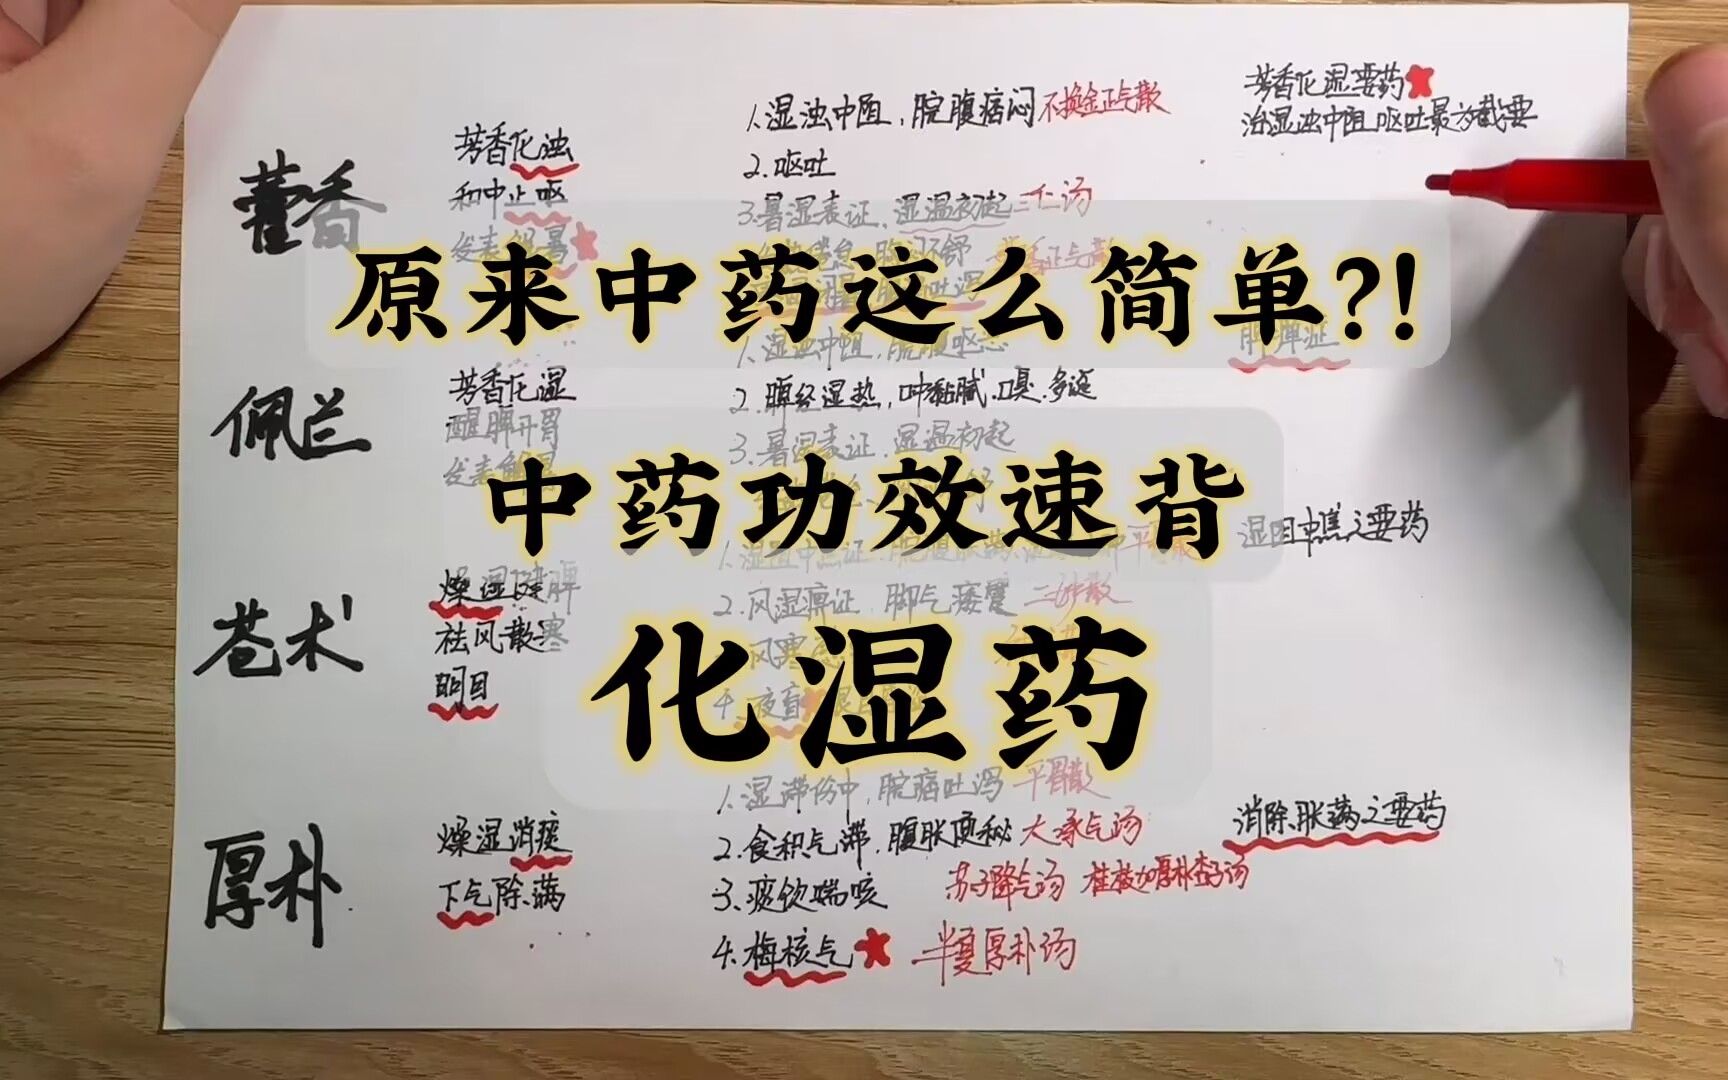 藿香
芳香化浊
和中止呕
发表解暑
1.湿浊中阻,脘腹痞闷 不换金正气散
2.呕吐
3.暑湿表证,湿温初起 三仁汤
芳香化湿要药
治湿浊中阻呕吐最为截要
原来中药这么简单?!
佩兰
芳香化湿
醒脾开胃
发表解暑
2.脾经湿热,口中黏腻.口臭.多涎
3.暑湿表证,湿温初起
脾瘅证
中药功效速背
苍术
燥湿健脾
祛风散寒
明目
2.风湿痹证,脚气痿躄 二妙散
湿阻中焦之要药
化湿药
厚朴
燥湿消痰
下气除满
1.湿滞伤中,脘痞吐泻 平胃散
2.食积气滞,腹胀便秘 大承气汤
3.痰饮喘咳 苏子降气汤 桂枝加厚朴杏子汤
4.梅核气 半夏厚朴汤
消除胀满之要药